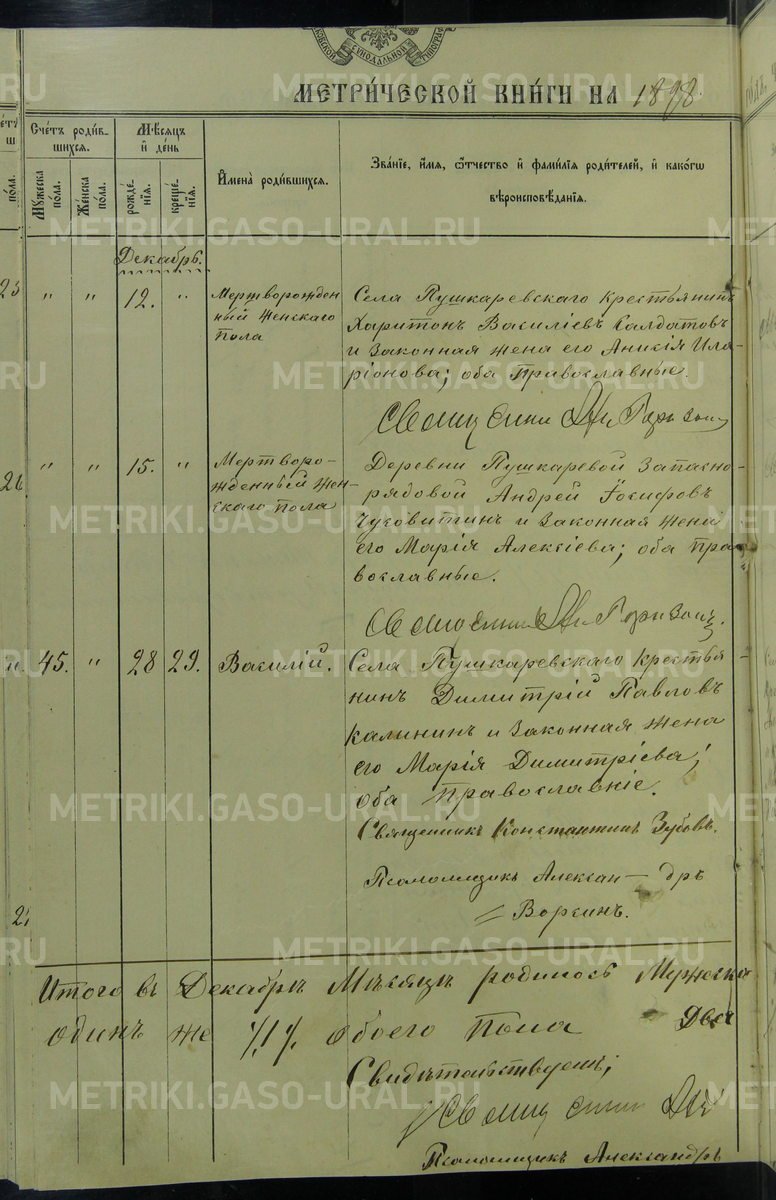 СѴНОДАЛЬНОЙ
МЕТРИ́ЧЕСКОЙ КНИ́ГИ НА 1898
Счетъ роди́в-
шихся.
Мѣсяцъ
и день
Мꙋжеска
по́ла.
Женска
по́ла.
рожде-
нїя.
креще-
нїя.
И҆мена̀ роди́вшихся.
Зва́нїе, и҆́мя, ѻ҆́тчество и҆ фами́лїѧ роди́телей, и҆ како́гѡ
вѣроисповѣ́данїѧ.
Декабрь.
" " 12. "
Мертворожден
ный женскаго
пола
Села Пушкаревскаго крестьянинъ
Харитонъ Василіевъ Салдатовъ
и законная жена его Анисія Ила-
ріонова; оба православные.
" " 15. "
Мертворо-
жденный жен-
скаго пола
Деревни Пушкаревой запасно-
рядовой Андрей Іосифовъ
Чусовитинъ и законная жена
его Марія Алексіева; оба пра-
вославные.
45. " 28 29. Василій.
Села Пушкаревскаго крестья-
нинъ Димитрій Павловъ
Калининъ и законная жена
его Марія Димитріева;
оба православніе.
Священникъ Константинъ Зубовъ.
Псаломщикъ Алексан— дръ
Воргинъ.
Итого въ Декабрѣ Мѣсяцѣ родилось Мужеска
одинъ же %1% обоего пола два
Свидѣтельствуемъ;
Псаломщикъ Александръ
METRIKI.GASO-URAL.RU